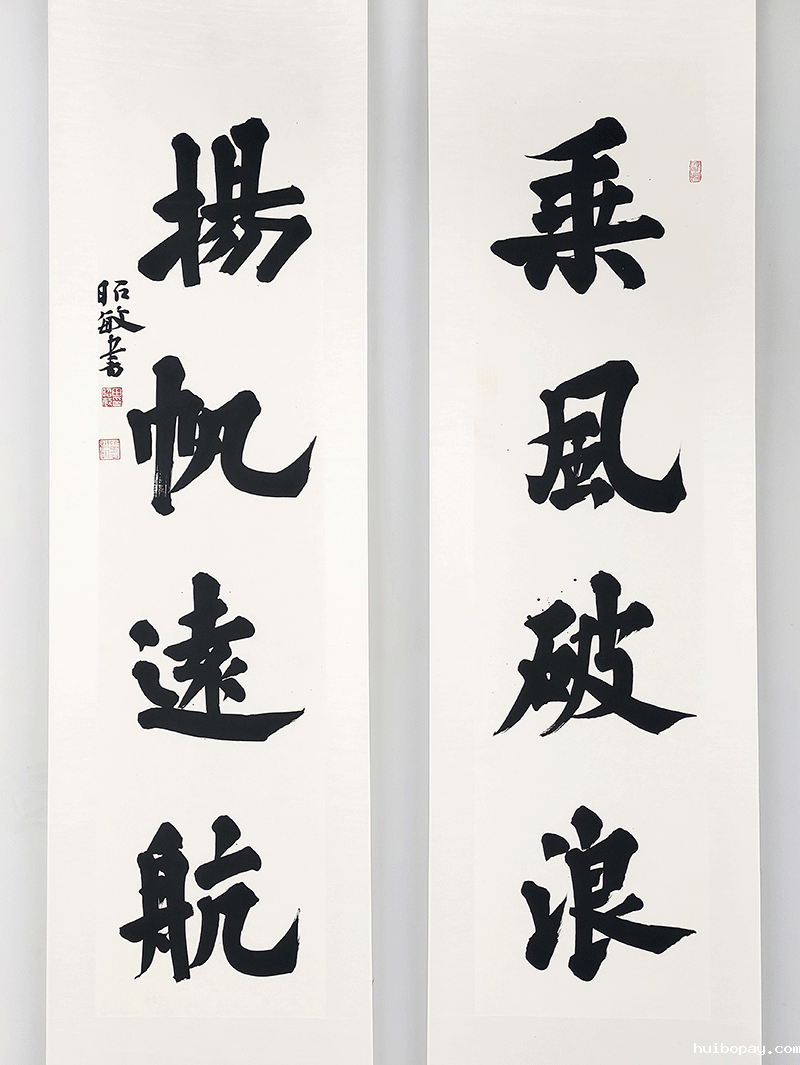 乘風破浪
揚帆遠航
昭敏書
huibopay.com